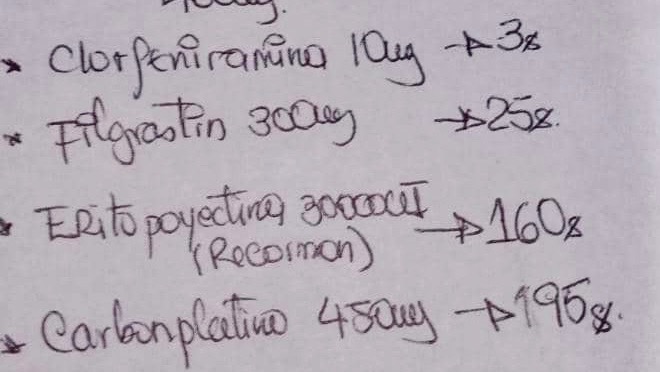 * Clorfeniramina 10mg → 3$
* Filgrastin 300mg → 25$.
* Eritopoyectina 30000UI → 160$
(Recormon)
* Carbonplatino 450mg → 195$.